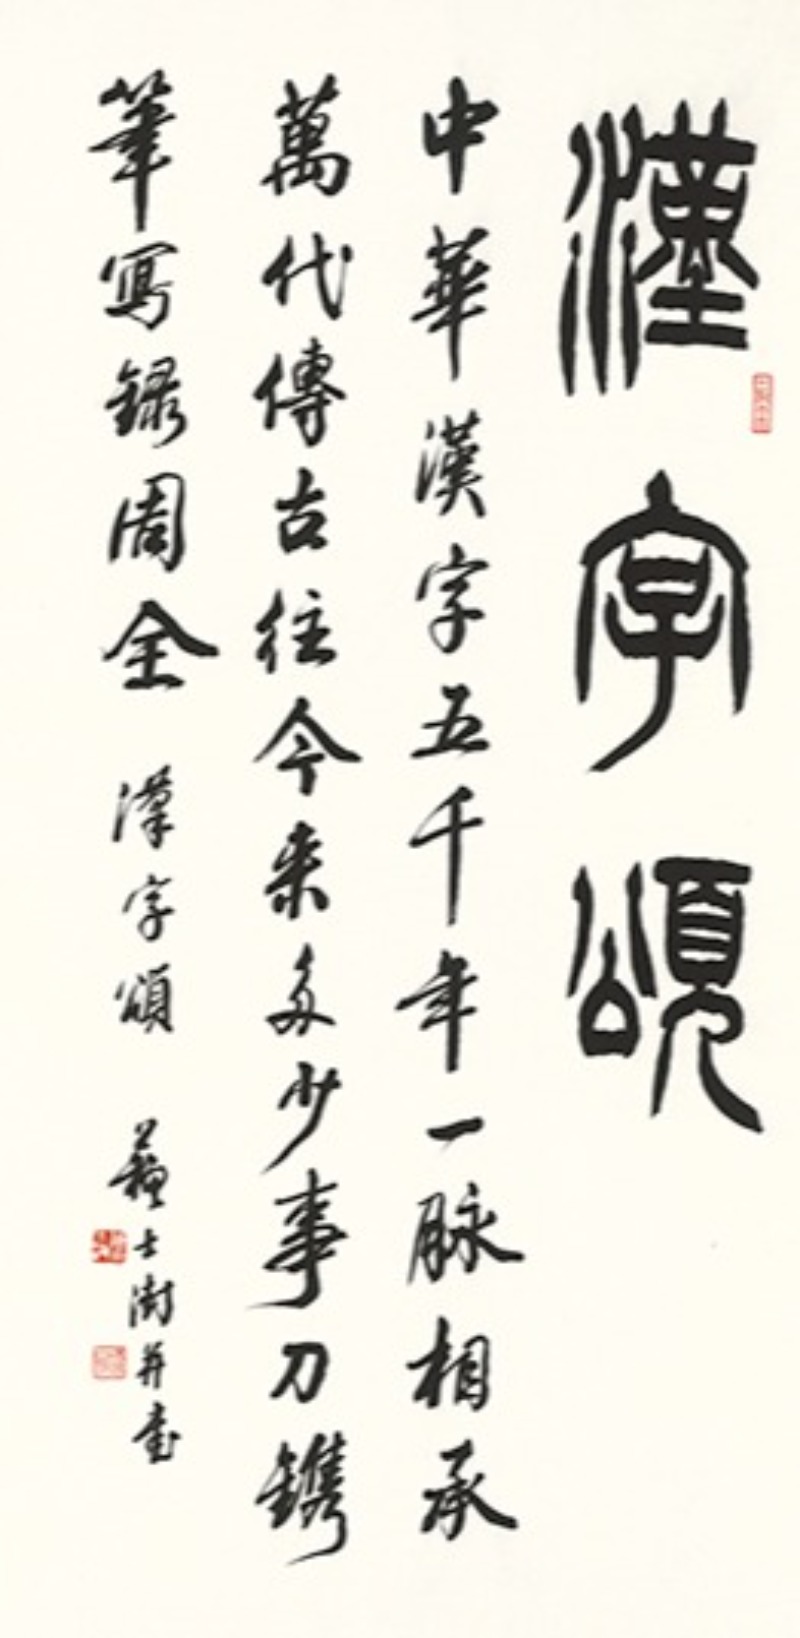 漢字頌
中華漢字五千年一脉相承
萬代傳古往今来多少事刀鐫
筆寫録周全 漢字頌 蘇士澍并書